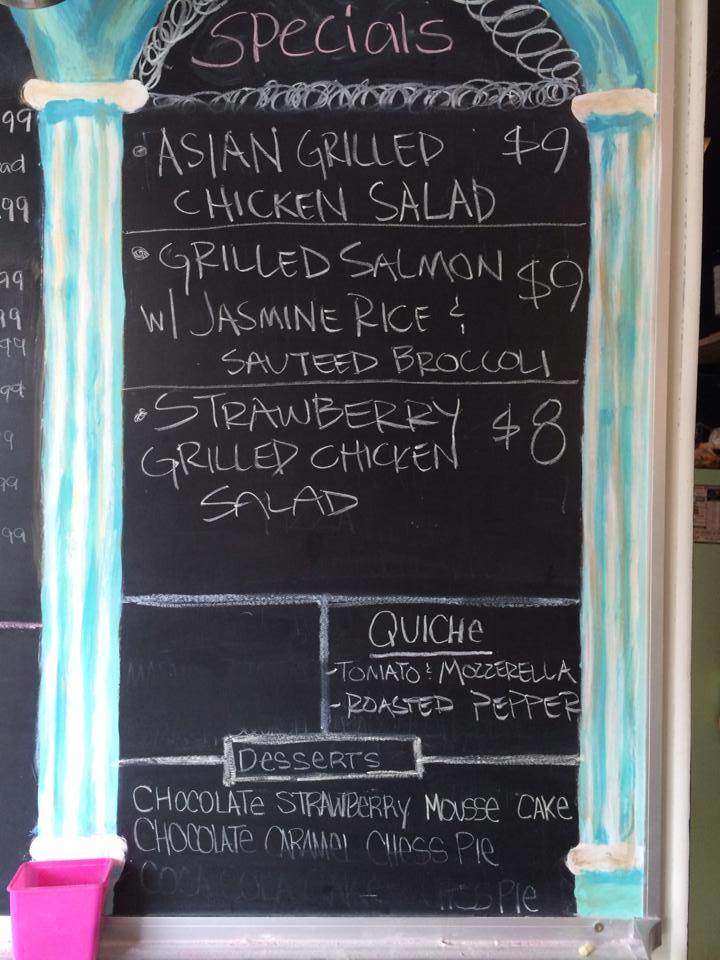 Specials
• ASIAN GRILLED $9
CHICKEN SALAD
• GRILLED SALMON $9
W/ JASMINE RICE &
SAUTEED BROCCOLI
• STRAWBERRY $8
GRILLED CHICKEN
SALAD
QUICHe
- TOMATO & MOZZERELLA
- ROASTED PEPPER
DesserTS
CHOCOLATe STRAWBERRY MOUSSe CAKe
CHOCOLATe CARAMel CHess PIe
COCA COLA
PIe
99
ad
.99
99
99
99
99
9
99
.99